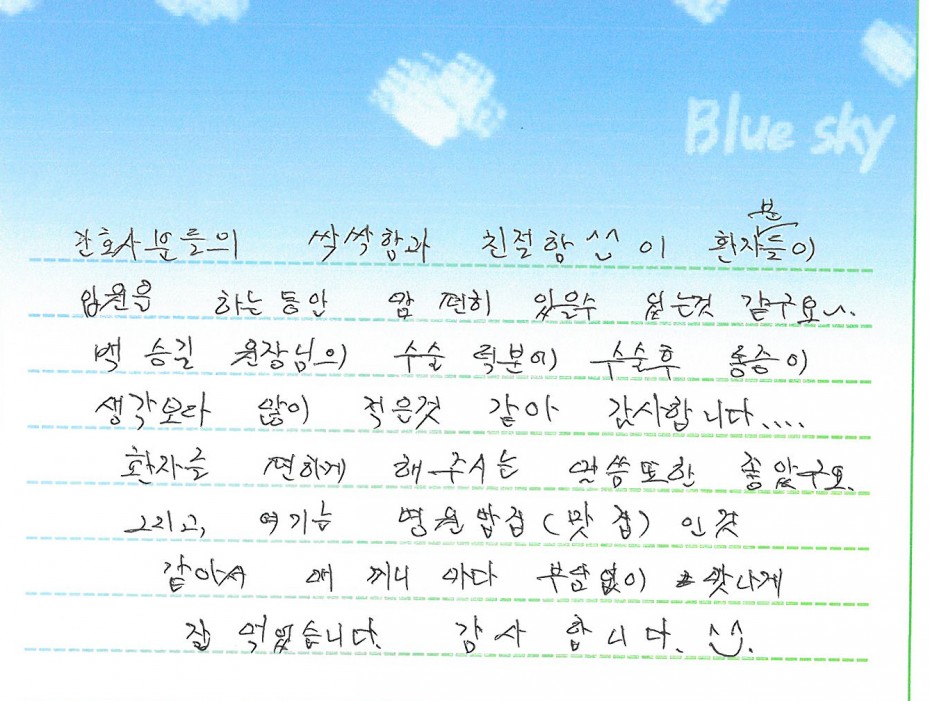 Blue sky
간호사분들의 싹싹함과 친절함^^이 환자분들이
입원을 하는동안 맘 편히 있을수 있는것 같구요~.
백승길 원장님의 수술 덕분에 수술후 통증이
생각보다 많이 적은것 같아 감사합니다....
환자를 편하게 해주시는 말씀또한 좋았구요.
그리고, 여기는 병원밥집(맛집)인것
같아서 매 끼니 마다 부담없이 맛나게
잘 먹었습니다. 감사 합니다. ^^